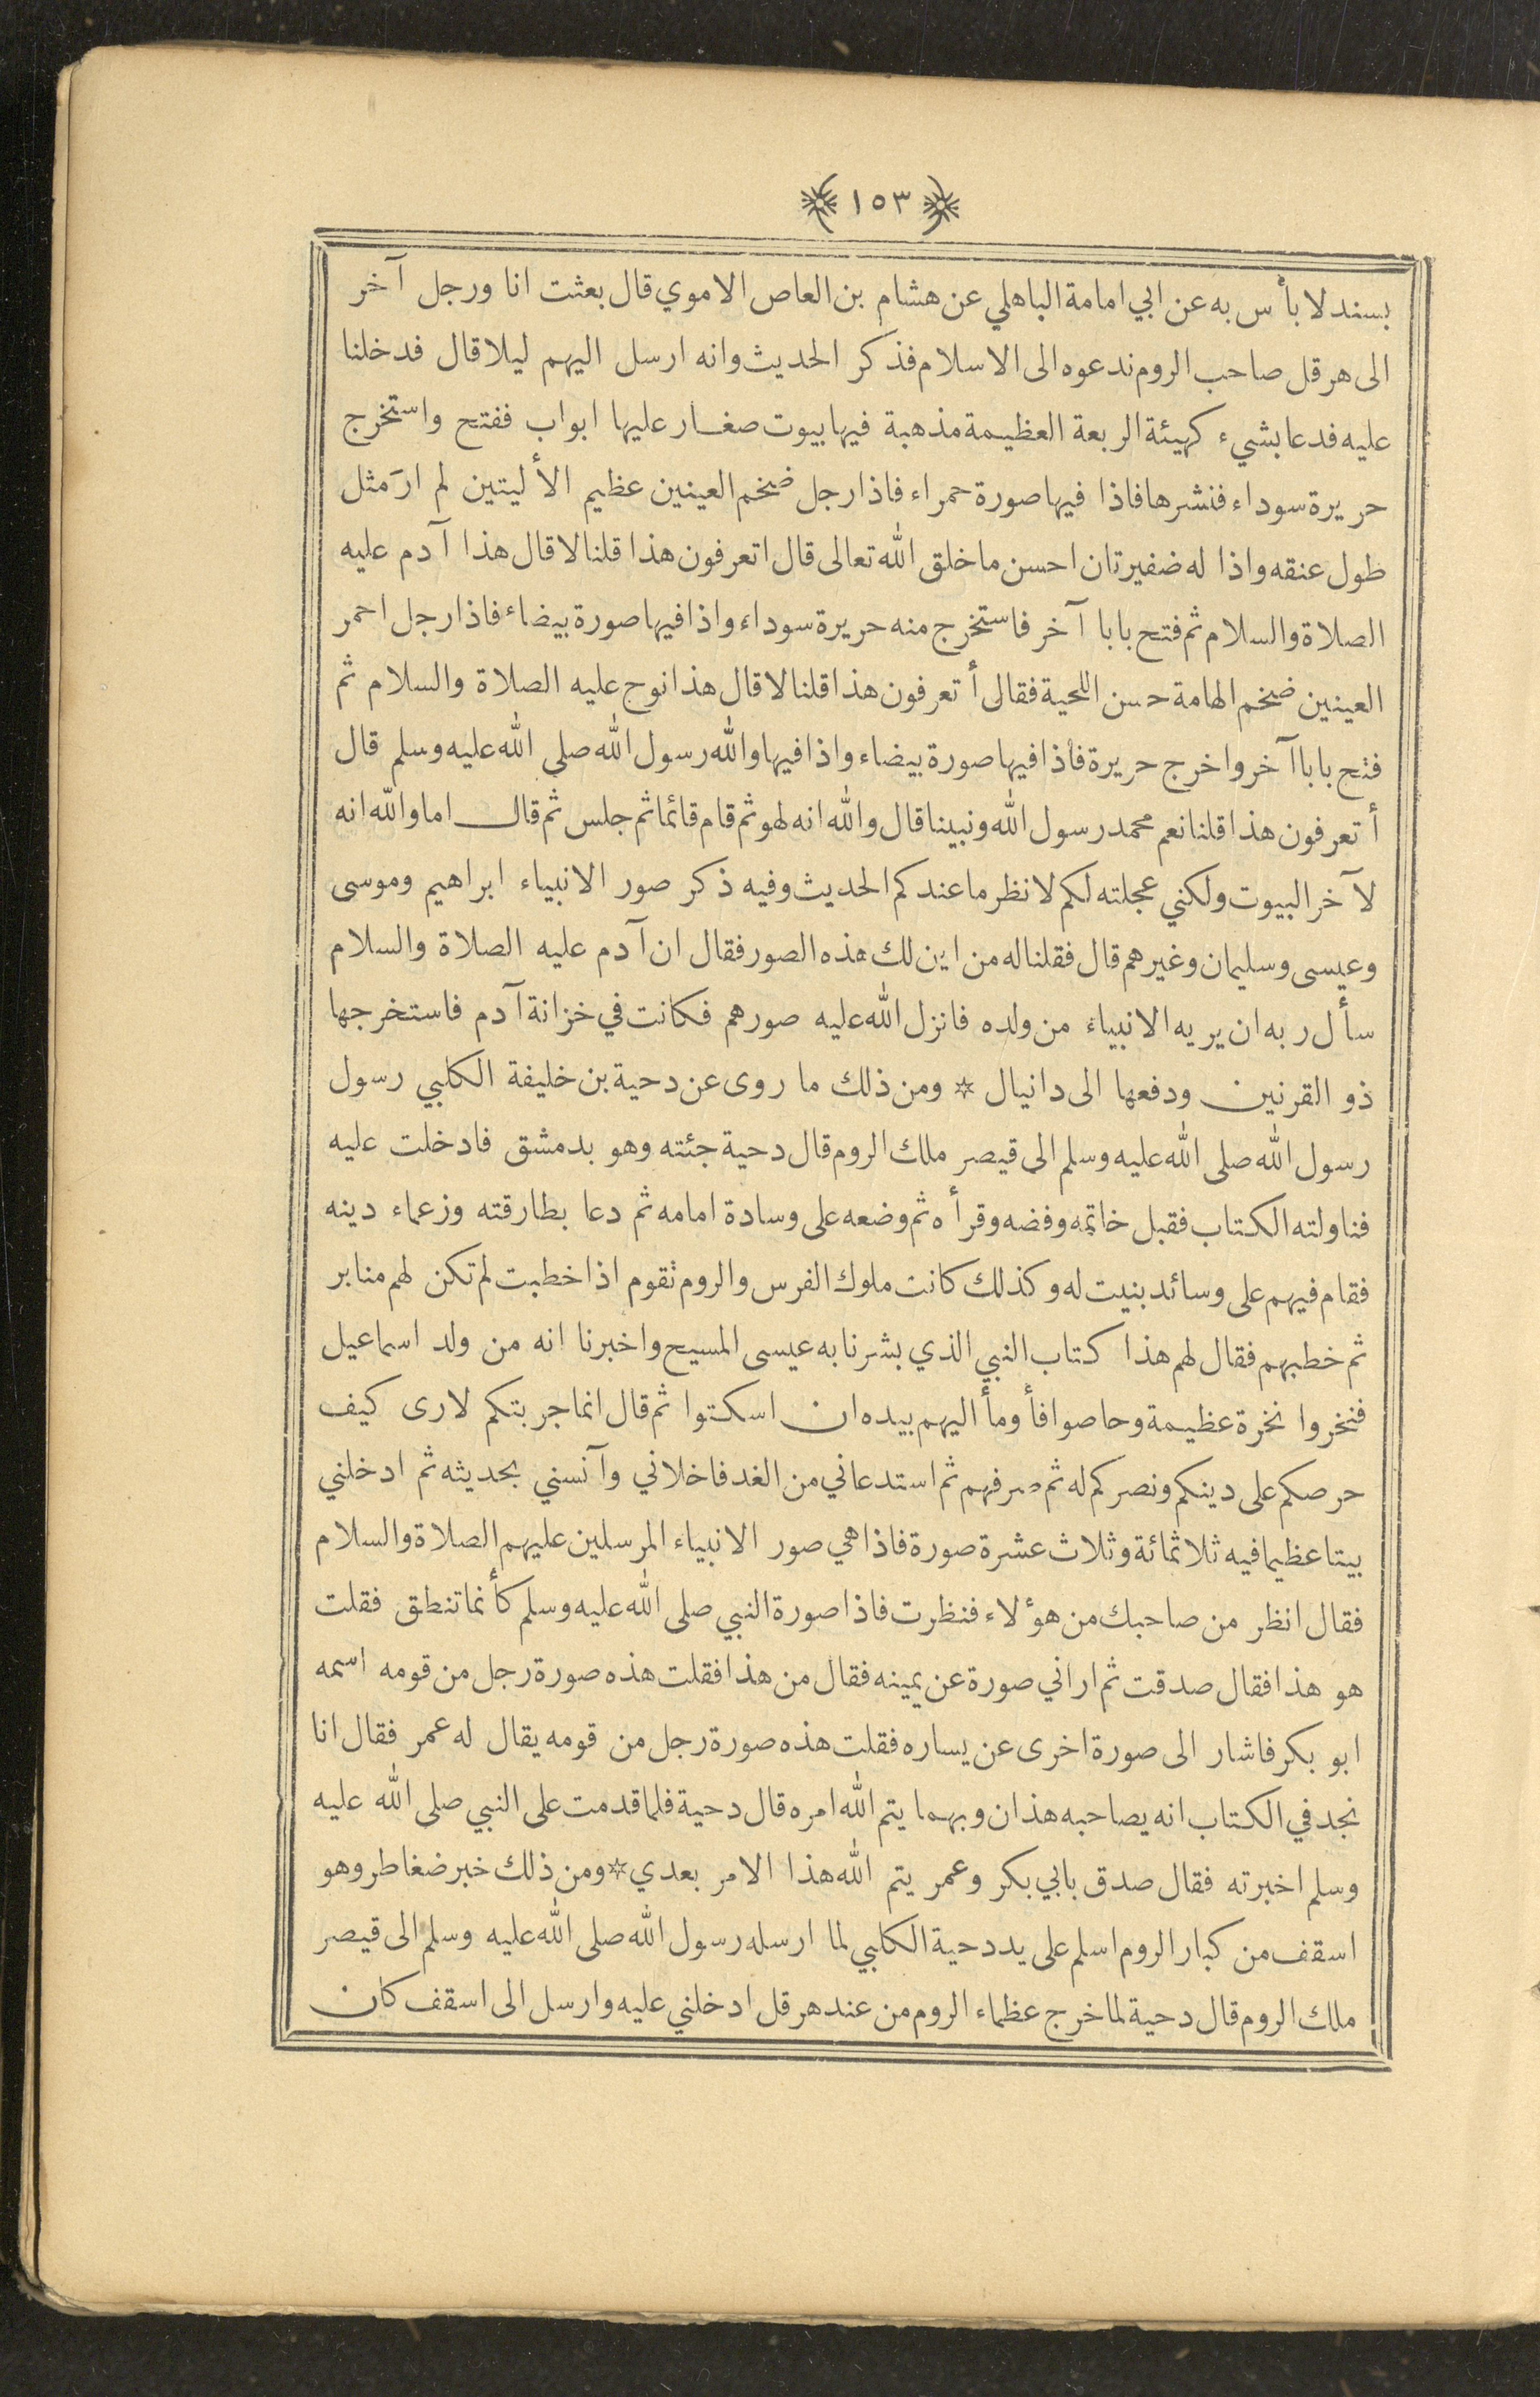 ﴿ ١٥٣ ﴾
بسند لا بأس به عن ابي امامة الباهلي عن هشام بن العاص الاموي قال بعثت انا ورجل آخر
الى هرقل صاحب الروم ندعوه الى الاسلام فذكر الحديث وانه ارسل اليهم ليلا قال فدخلنا
عليه فدعا بشيء كهيئة الربعة العظيمة مذهبة فيها بيوت صغار عليها ابواب ففتح واستخرج
حريرة سوداء فنشرها فاذا فيها صورة حمراء فاذا رجل ضخم العينين عظيم الأليتين لم ارَ مثل
طول عنقه واذا له ضفيرتان احسن ما خلق الله تعالى قال اتعرفون هذا قلنا لا قال هذا آدم عليه
الصلاة والسلام ثم فتح بابا آخر فاستخرج منه حريرة سوداء واذا فيها صورة بيضاء فاذا رجل احمر
العينين ضخم الهامة حسن اللحية فقال أتعرفون هذا قلنا لا قال هذا نوح عليه الصلاة والسلام ثم
فتح بابا آخر واخرج حريرة فأذا فيها صورة بيضاء واذا فيها والله رسول الله صلى الله عليه وسلم قال
أتعرفون هذا قلنا نعم محمد رسول الله ونبينا قال والله انه لهو ثم قام قائما ثم جلس ثم قال اما والله انه
لآخر البيوت ولكني عجلته لكم لانظر ما عندكم الحديث وفيه ذكر صور الانبياء ابراهيم وموسى
وعيسى وسليمان وغيرهم قال فقلنا له من اين لك هذه الصور فقال ان آدم عليه الصلاة والسلام
سأل ربه ان يريه الانبياء من ولده فانزل الله عليه صورهم فكانت في خزانة آدم فاستخرجها
ذو القرنين ودفعها الى دانيال * ومن ذلك ما روى عن دحية بن خليفة الكلبي رسول
رسول الله صلى الله عليه وسلم الى قيصر ملك الروم قال دحية جئته وهو بدمشق فادخلت عليه
فناولته الكتاب فقبل خاتمه وفضه وقرأه ثم وضعه على وسادة امامه ثم دعا بطارقته وزعماء دينه
فقام فيهم على وسائد بنيت له وكذلك كانت ملوك الفرس والروم تقوم اذا خطبت لم تكن لهم منابر
ثم خطبهم فقال لهم هذا كتاب النبي الذي بشرنا به عيسى المسيح واخبرنا انه من ولد اسماعيل
فنخروا نخرة عظيمة وحاصوا فأومأ اليهم بيده ان اسكتوا ثم قال انما جربتكم لارى كيف
حرصكم على دينكم ونصركم له ثم صرفهم ثم استدعاني من الغد فاخلاني وآنسني بحديثه ثم ادخلني
بيتا عظيما فيه ثلاثمائة وثلاث عشرة صورة فاذا هي صور الانبياء المرسلين عليهم الصلاة والسلام
فقال انظر من صاحبك من هؤلاء فنظرت فاذا صورة النبي صلى الله عليه وسلم كأنما تنطق فقلت
هو هذا فقال صدقت ثم اراني صورة عن يمينه فقال من هذا فقلت هذه صورة رجل من قومه اسمه
ابو بكر فاشار الى صورة اخرى عن يساره فقلت هذه صورة رجل من قومه يقال له عمر فقال انا
نجد في الكتاب انه يصاحبه هذان وبهما يتم الله امره قال دحية فلما قدمت على النبي صلى الله عليه
وسلم اخبرته فقال صدق بابي بكر وعمر يتم الله هذا الامر بعدي * ومن ذلك خبر ضغاطر وهو
اسقف من كبار الروم اسلم على يد دحية الكلبي لما ارسله رسول الله صلى الله عليه وسلم الى قيصر
ملك الروم قال دحية لما خرج عظماء الروم من عند هرقل ادخلني عليه وارسل الى اسقف كان